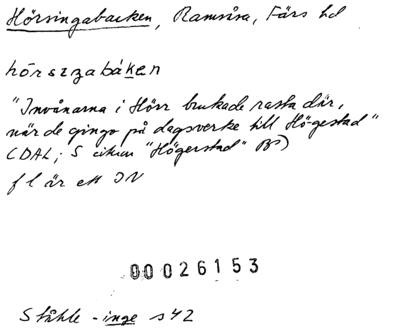 Hörsingabacken, Ramsåsa, Färs hd
hörsɪŋabákɛn
"Invånarna i Hörr brukade rasta där,
när de gingo på dagsverke till Högestad"
(DAL; S "Högerstad" BS)
f l är ett IN
00026153
Ståhle -inge s 42